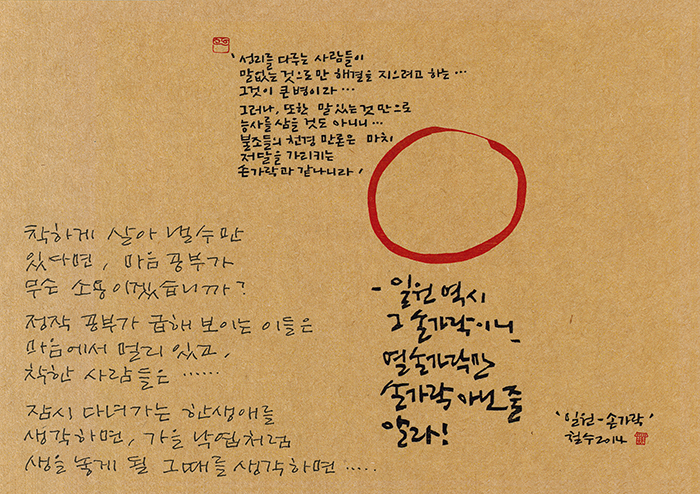 '성리를 다루는 사람들이
말없는 것으로만 해결을 지으려고 하는…
그것이 큰 병이라…
그러나, 또한 말 있는 것만으로
능사를 삼을 것도 아니니…
불조들의 천경 만론은 마치
저 달을 가리키는
손가락과 같나니라'
- 일원 역시
그 손가락이니,
열 손가락만
손가락 아닌 줄
알라!
착하게 살아 낼 수만
있다면, 마음 공부가
무슨 소용이겠습니까?
정작 공부가 급해 보이는 이들은
마음에서 멀리 있고,
착한 사람들은……
잠시 다녀가는 한생애를
생각하면, 가을 낙엽처럼
생을 놓게 될 그때를 생각하면…..
'일원-손가락'
철수 2014